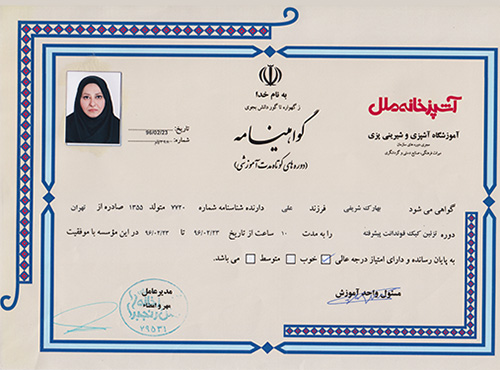 به نام خدا
ز گهواره تا گور دانش بجوی
گواهینامه
(دوره‌های کوتاه مدت آموزشی)
آشپزخانه ملل
آموزشگاه آشپزی و شیرینی پزی
مجری دوره های سازمان
میراث فرهنگی، صنایع دستی و گردشگری
تاریخ: 96/02/23
شماره:
گواهی می شود بهارک شریفی فرزند علی دارنده شناسنامه شماره ۷۷۲۰ متولد ۱۳۵۵ صادره از تهران
دوره تزئین کیک فوندانت پیشرفته را به مدت ۱۰ ساعت از تاریخ ۹۶/۰۲/۲۳ تا ۹۶/۰۲/۲۳ در این مؤسسه با موفقیت
به پایان رسانده و دارای امتیاز درجه عالی خوب متوسط می باشد.
مسئول واحد آموزش
مدیرعامل
مهر و امضاء
79531